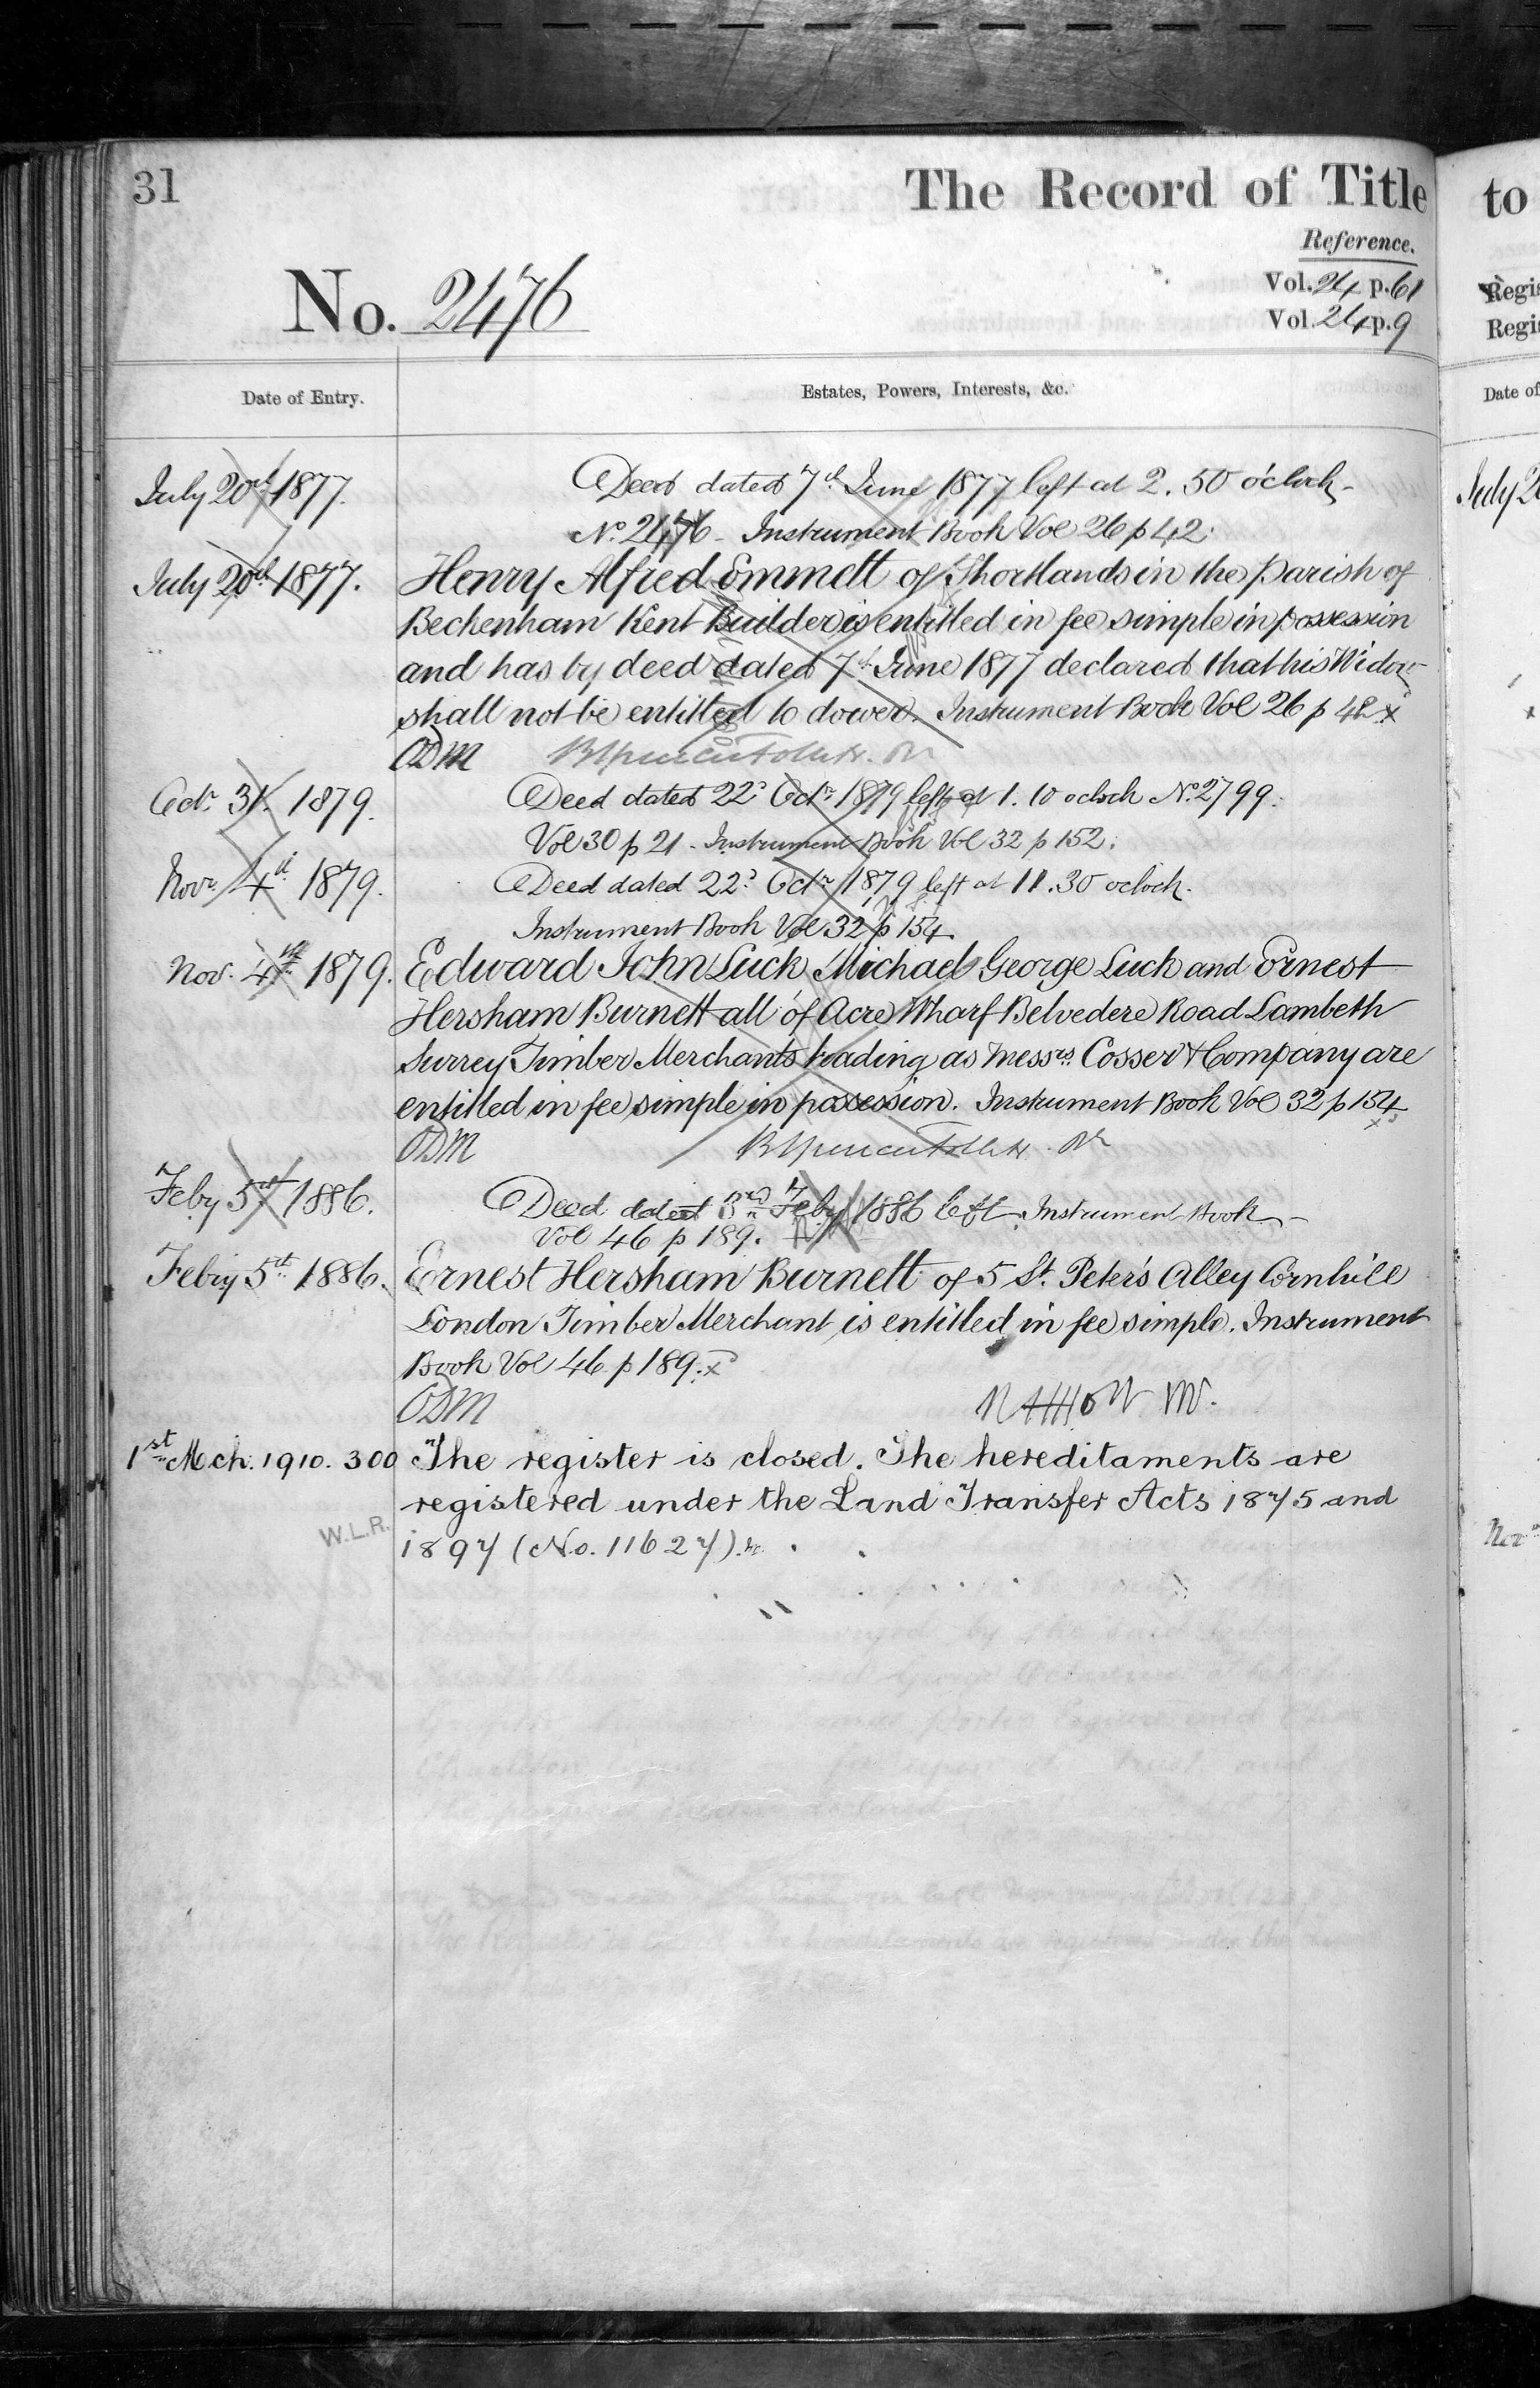 31
The Record of Title
to
Reference.
No. 2476
Vol. 24 p. 61
Vol. 24 p. 9
Regis
Regis
Date of Entry.
Estates, Powers, Interests, &c.
Date of
July 20th 1877.
Deed dated 7th June 1877 left at 2.50 o'clock -
July 2
No. 2476 - Instrument Book Vol 26 p 42.
July 20th 1877.
Henry Alfred Emmett of Shortlands in the Parish of
Beckenham Kent Builder is entitled in fee simple in possession
and has by deed dated 7th June 1877 declared that his Widow
shall not be entitled to dower. Instrument Book Vol 26 p 42 x
ODM
Octr. 31. 1879.
Deed dated 22d Octr 1879 left at 1.10 oclock No. 2799.
Vol 30 p 21 - Instrument Book Vol 32 p 152.
Novr. 4th 1879.
Deed dated 22d Octr 1879 left at 11.30 oclock.
Instrument Book Vol 32 p 154.
Nov. 4th 1879.
Edward John Luck Michael George Luck and Ernest
Hersham Burnett all of Acre Wharf Belvedere Road Lambeth
Surrey Timber Merchants trading as Messrs. Cosser & Company are
entitled in fee simple in possession. Instrument Book Vol 32 p 154
ODM
Feby 5th 1886.
Deed dated 3rd Feby 1886 left. Instrument Book -
Vol 46 p 189.
Febry 5th 1886.
Ernest Hersham Burnett of 5 St. Peter's Alley Cornhill
London Timber Merchant is entitled in fee simple. Instrument
Book Vol 46 p 189. x
ODM
1st Mch. 1910. 300
The register is closed. The hereditaments are
registered under the Land Transfer Acts 1875 and
W.L.R.
1897 (No. 11627).
Nov